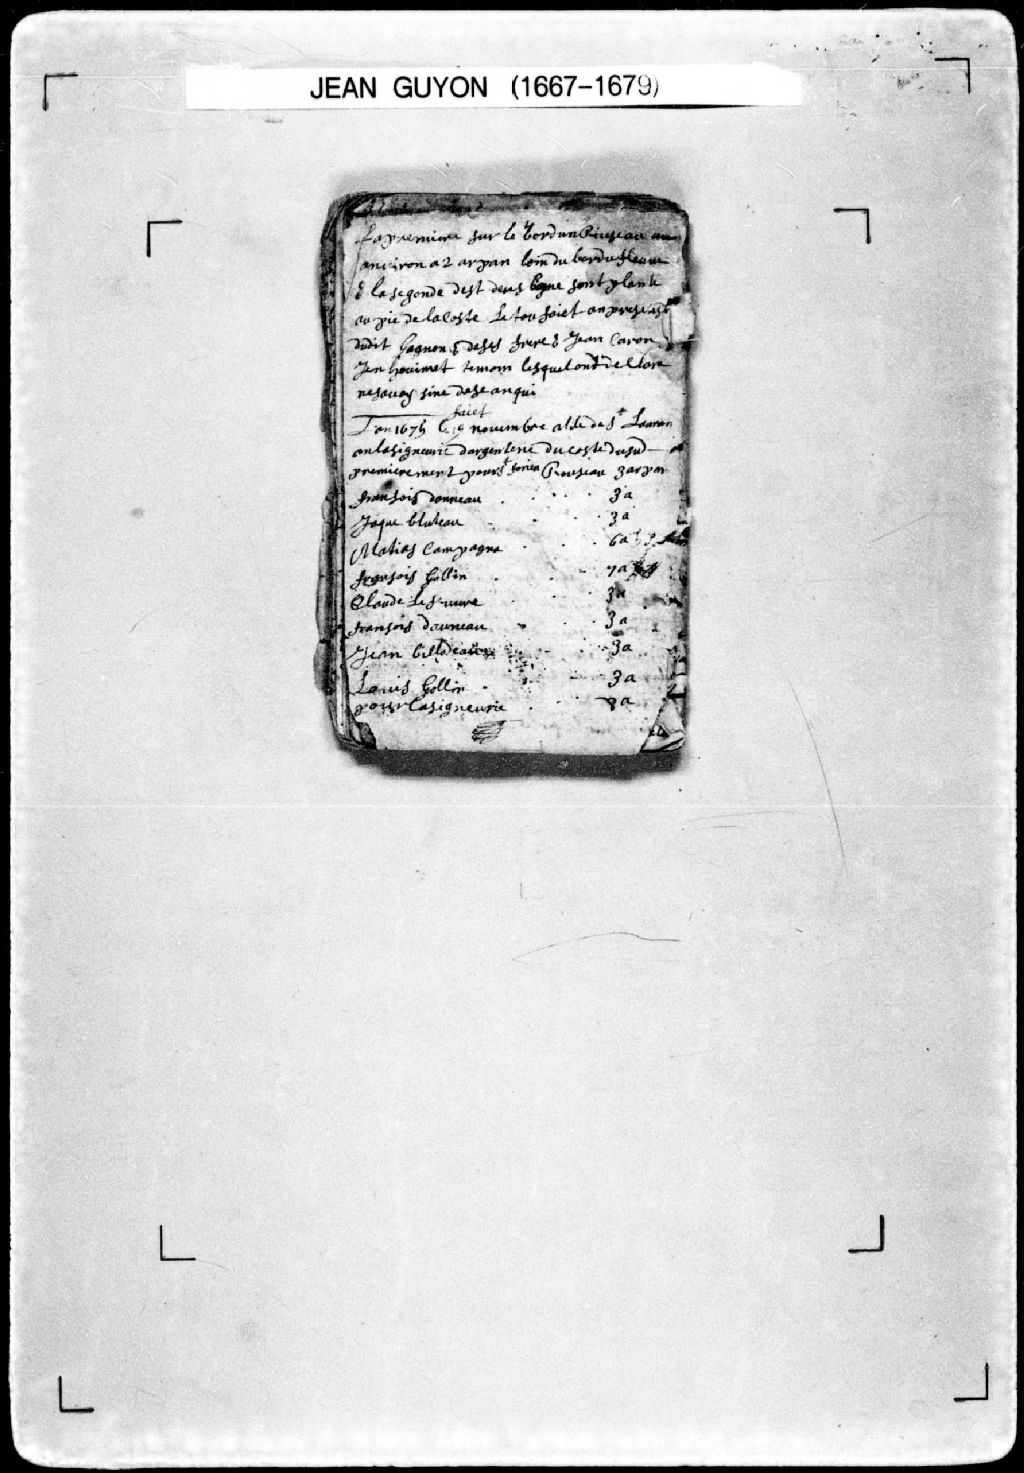 JEAN GUYON (1667-1679)
La premiere sur le bord un Ruiseau
anviron a 2 arpan loin du bord du fleuve
& la segonde dest deus ligne sont plante
au pie de la Coste Le tou faict an presanse
dudit Gagnon & de ses frere & Jean Caron
Jen houimet temoin lesquel ont declare
ne savoy sine de se anqui
faict
Lan 1675 Le 19 novembre a lile de St Lauran
an la signeurie dargenterie du coste du sud
premierement pour Rouseau 3 arpan
fransois daneau 3 a
Jaque bluteau 3 a
Matias Campagna 6 a
fransois Gollin 7 a
Claude Lefeuvre 3 a
fransois dauneau 3 a
Jean billodeau 3 a
Louis Gollin 3 a
pour la signeurie 8 a